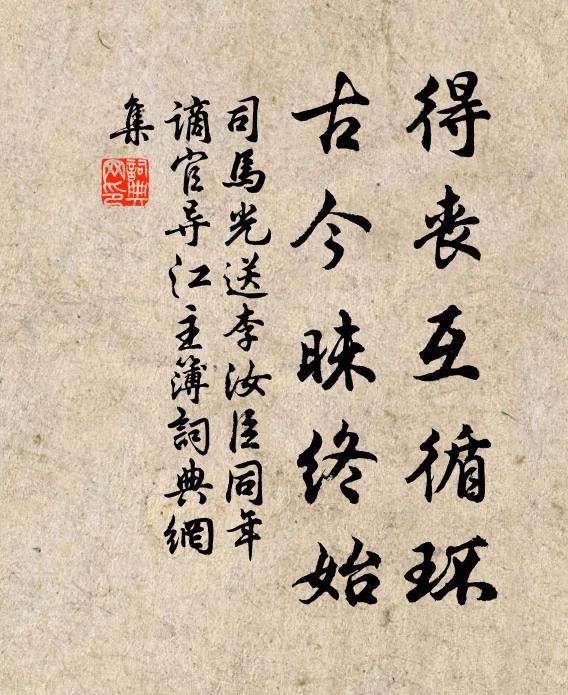 得丧互循环
古今昧终始
司馬光送李汝臣同年
谪官导江主簿詞典網
集
詞典網印